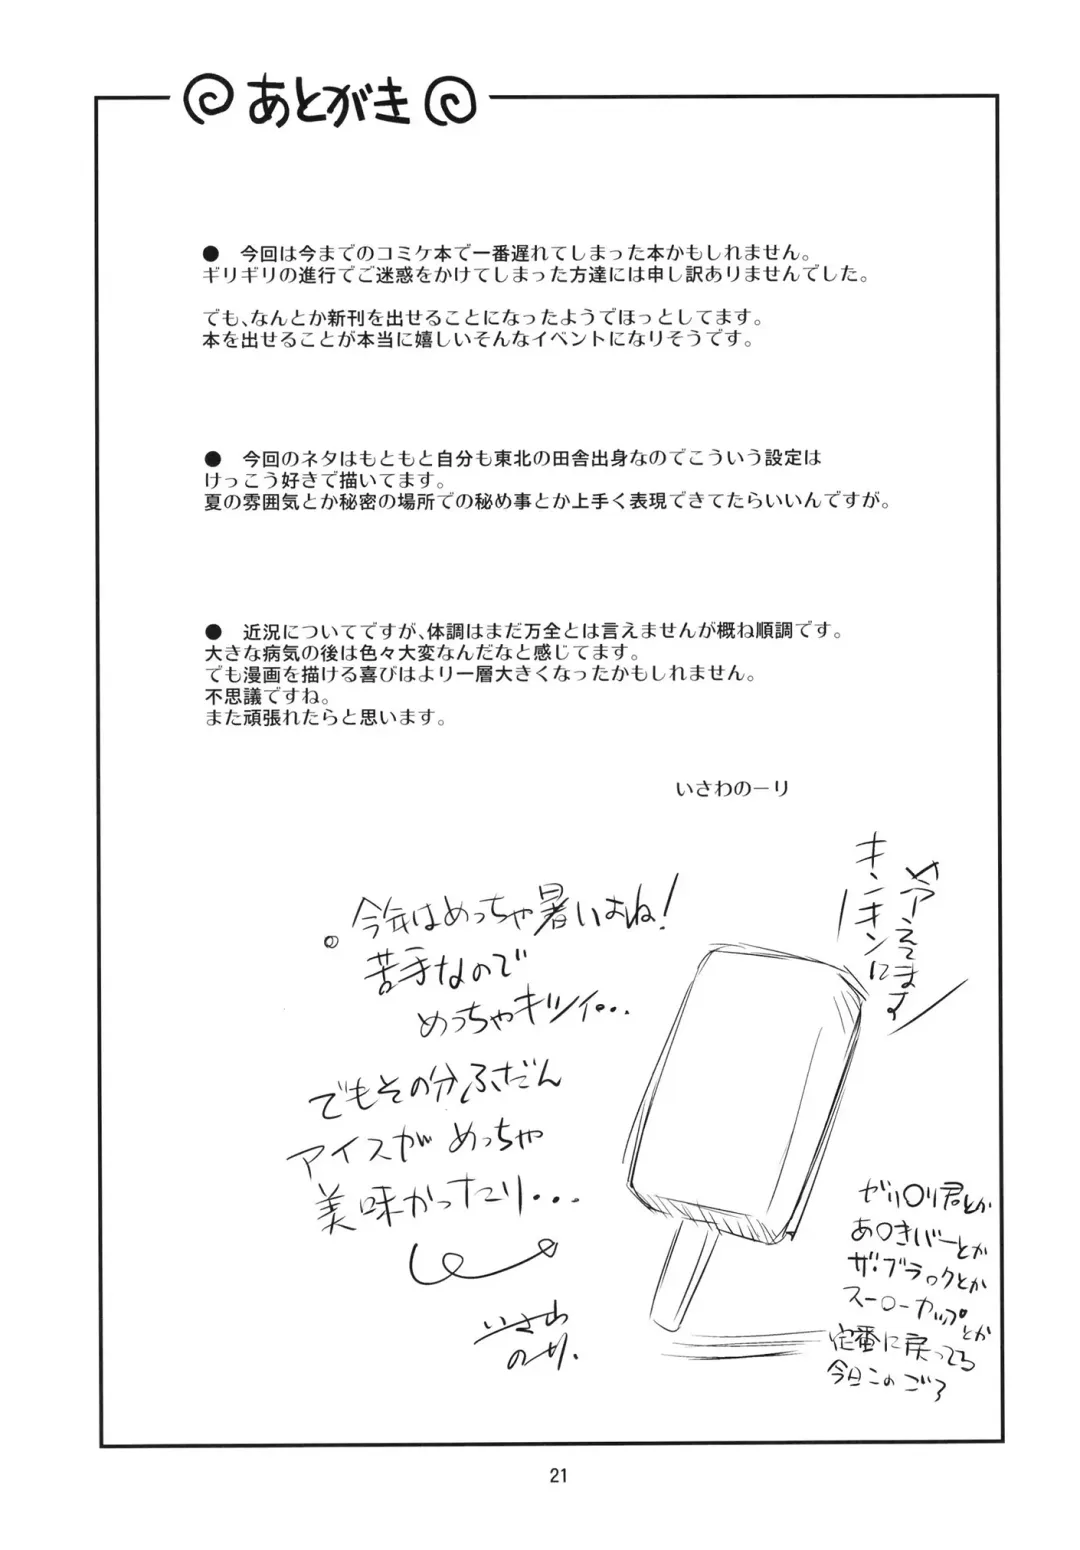 あとがき
● 今回は今までのコミケ本で一番遅れてしまった本かもしれません。
ギリギリの進行でご迷惑をかけてしまった方達には申し訳ありませんでした。
でも、なんとか新刊を出せることになったようでほっとしてます。
本を出せることが本当に嬉しいそんなイベントになりそうです。
● 今回のネタはもともと自分も東北の田舎出身なのでこういう設定は
けっこう好きで描いてます。
夏の雰囲気とか秘密の場所での秘め事とか上手く表現できてたらいいんですが。
● 近況についてですが、体調はまだ万全とは言えませんが概ね順調です。
大きな病気の後は色々大変なんだなと感じてます。
でも漫画を描ける喜びはより一層大きくなったかもしれません。
不思議ですね。
また頑張れたらと思います。
いさわのーり
キンキンに
冷えてます
今年はめっちゃ暑いおね!
苦手なので
めっちゃキツイ...
でもその分ふだん
アイスがめっちゃ
美味かったり...
いさわ
のーり.
ガリ○リ君とか
あ○きバーとか
ザ・ブラ○クとか
スー○ーカップとか
定番に戻ってる
今日このごろ
21